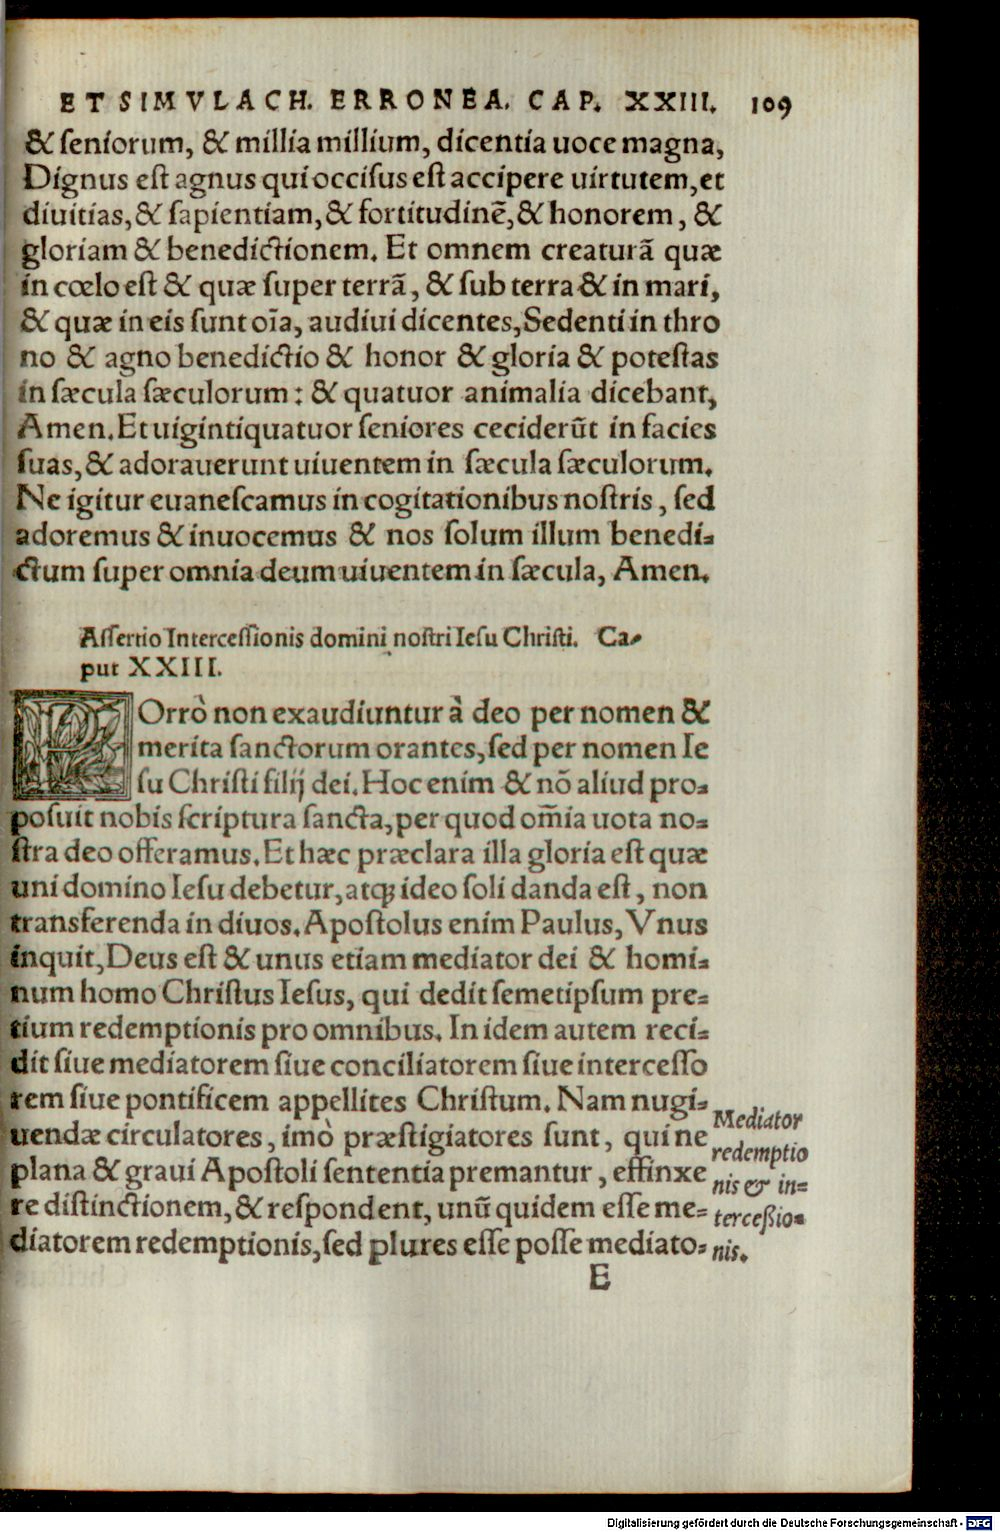 ET SIMVLACH. ERRONEA. CAP. XXIII. 109
& ſeniorum, & millia millium, dicentia uoce magna,
Dignus eſt agnus qui occiſus eſt accipere uirtutem, et
diuitias, & ſapientiam, & fortitudinē, & honorem, &
gloriam & benedictionem. Et omnem creaturā quæ
in cœlo eſt & quæ ſuper terrā, & ſub terra & in mari,
& quæ in eis ſunt oīa, audiui dicentes, Sedenti in thro
no & agno benedictio & honor & gloria & poteſtas
in ſæcula ſæculorum: & quatuor animalia dicebant,
Amen. Et uigintiquatuor ſeniores ceciderūt in facies
ſuas, & adorauerunt uiuentem in ſæcula ſæculorum.
Ne igitur euaneſcamus in cogitationibus noſtris, ſed
adoremus & inuocemus & nos ſolum illum benedi-
ctum ſuper omnia deum uiuentem in ſæcula, Amen.
Aſſertio Interceſſionis domini noſtri Ieſu Chriſti. Ca-
put XXIII.
POrrò non exaudiuntur à deo per nomen &
merita ſanctorum orantes, ſed per nomen Ie
ſu Chriſti filij dei. Hoc enim & nō aliud pro-
poſuit nobis ſcriptura ſancta, per quod om̄ia uota no-
ſtra deo offeramus. Et hæc præclara illa gloria eſt quæ
uni domino Ieſu debetur, atq́ ideo ſoli danda eſt, non
transferenda in diuos. Apoſtolus enim Paulus, Vnus
inquit, Deus eſt & unus etiam mediator dei & homi-
num homo Chriſtus Ieſus, qui dedit ſemetipſum pre-
tium redemptionis pro omnibus. In idem autem reci-
dit ſiue mediatorem ſiue conciliatorem ſiue interceſſo
rem ſiue pontificem appellites Chriſtum. Nam nugi-
uendæ circulatores, imò præſtigiatores ſunt, qui ne
plana & graui Apoſtoli ſententia premantur, effinxe
re diſtinctionem, & reſpondent, unū quidem eſſe me-
diatorem redemptionis, ſed plures eſſe poſſe mediato-
Mediator
redemptio
nis & in-
terceßio-
nis.
E
Digitalisierung gefördert durch die Deutsche Forschungsgemeinschaft - DFG